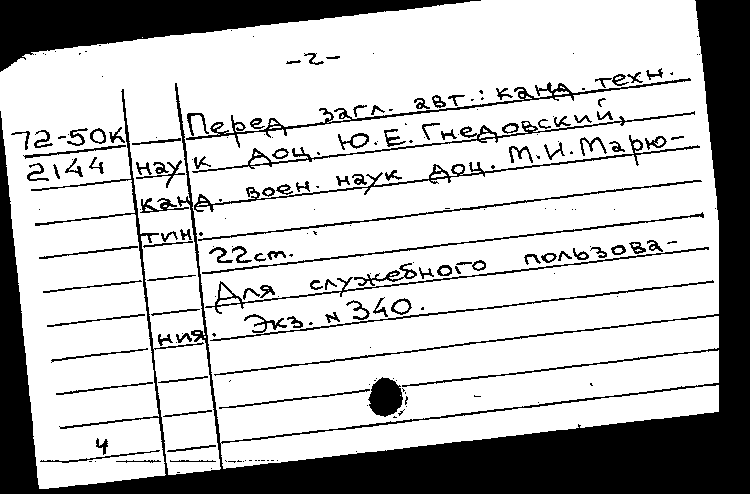 -2-
72-50к Перед загл. авт.: канд. техн.
2144 наук доц. Ю.Е. Гнедовский,
канд. воен. наук доц. М.И. Марю-
тин.
22ст.
Для служебного пользова-
ния. Экз. N 340.
4